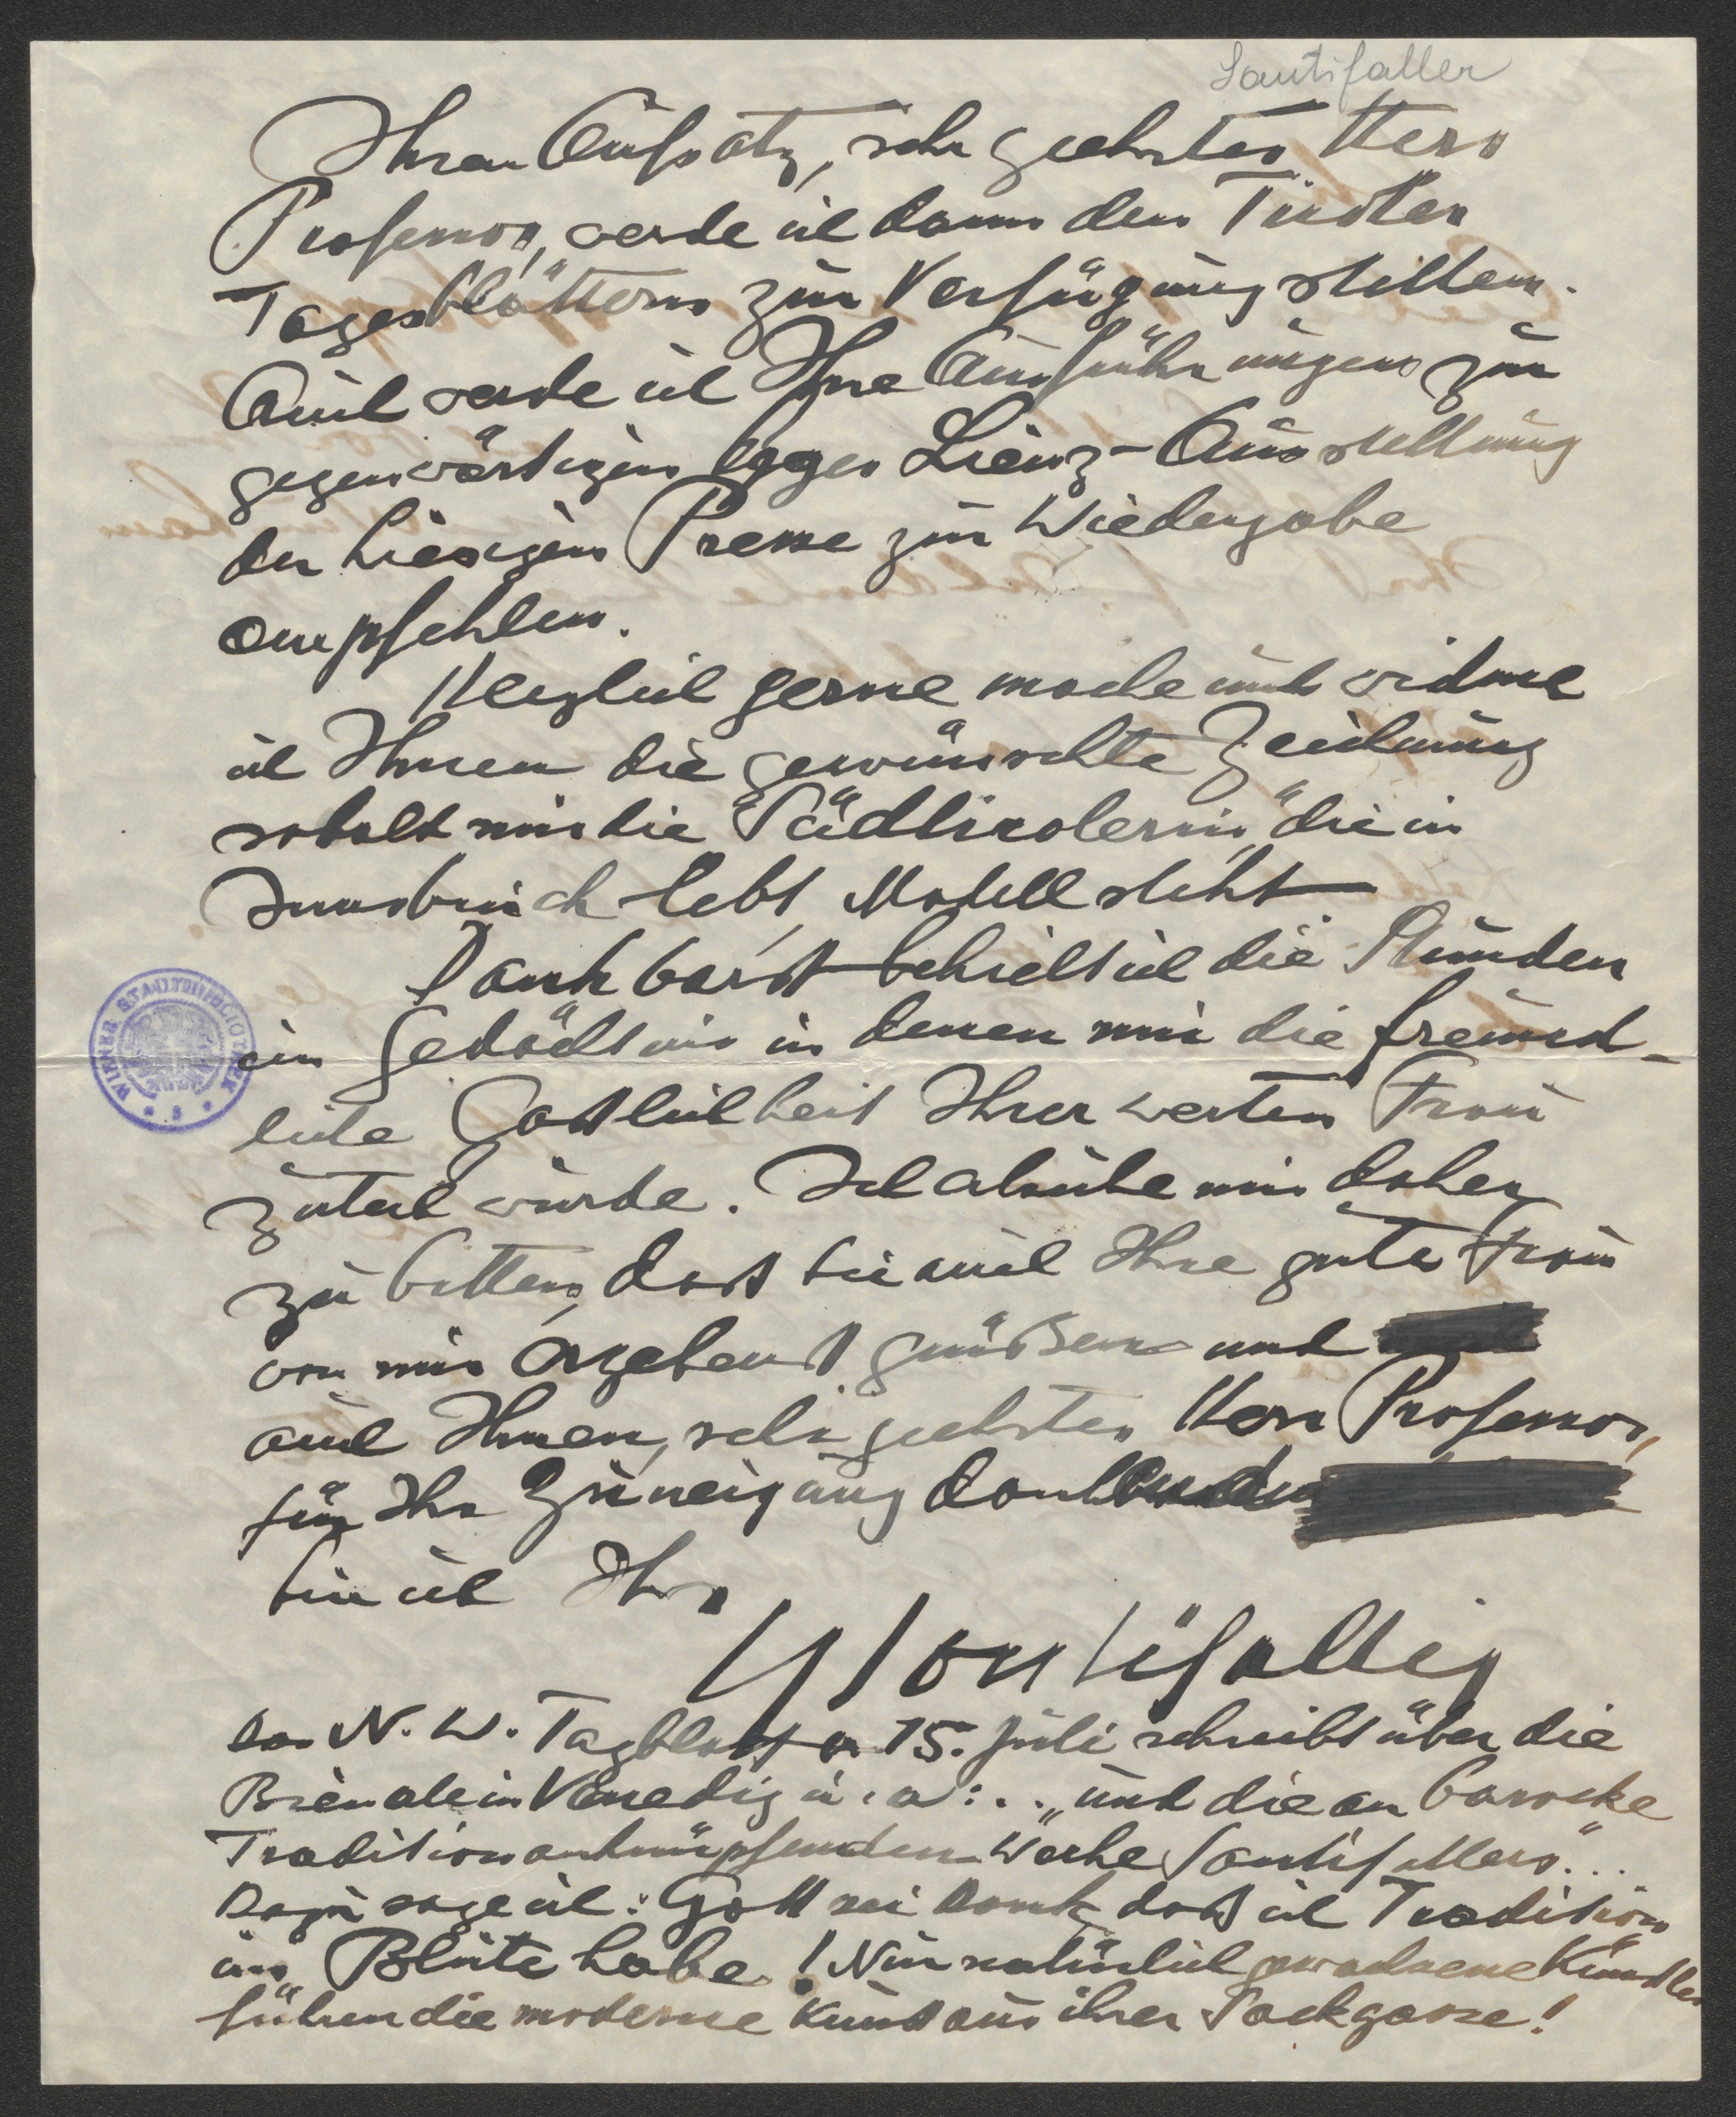 Santifaller
Ihren Aufsatz, sehr geehrter Herr
Professor, werde ich dann den Tiroler
Tagesblättern zur Verfügung stellen.
Auch werde ich Ihre Ausführungen zur
gegenwärtigen Egger Lienz-Ausstellung
der hiesigen Presse zur Wiedergabe
empfehlen.
Herzlich gerne mache und widme
ich Ihnen die gewünschte Zeichnung
sobald mir die "Südtirolerin" die in
Innsbruck lebt, Modell steht
Dankbarst behielt ich die Stunden
im Gedächtnis in denen mir die freund-
liche Gastlichkeit Ihrer werten Frau
zuteil wurde. Ich mir daher
zu bitten, dass Sie auch Ihre gute Frau
von mir ergebenst grüßen und
auch Ihnen, sehr geehrter Herr Professor,
für Ihr Zuneigung dankend
bin ich Ihr
Santifaller
WIENER STADTBIBLIOTHEK
Das N. W. Tagblatt v. 15. Juli schreibt über die
Bienale in Venedig u. a.: .. „und die an barocke
Tradition anknüpfenden Werke Santifallers"...
Dazu sage ich: Gott sei Dank, daß ich Tradition
im Blute habe! Nur natürlich gewachsene Künstler
führen die moderne Kunst aus ihrer Sackgasse!